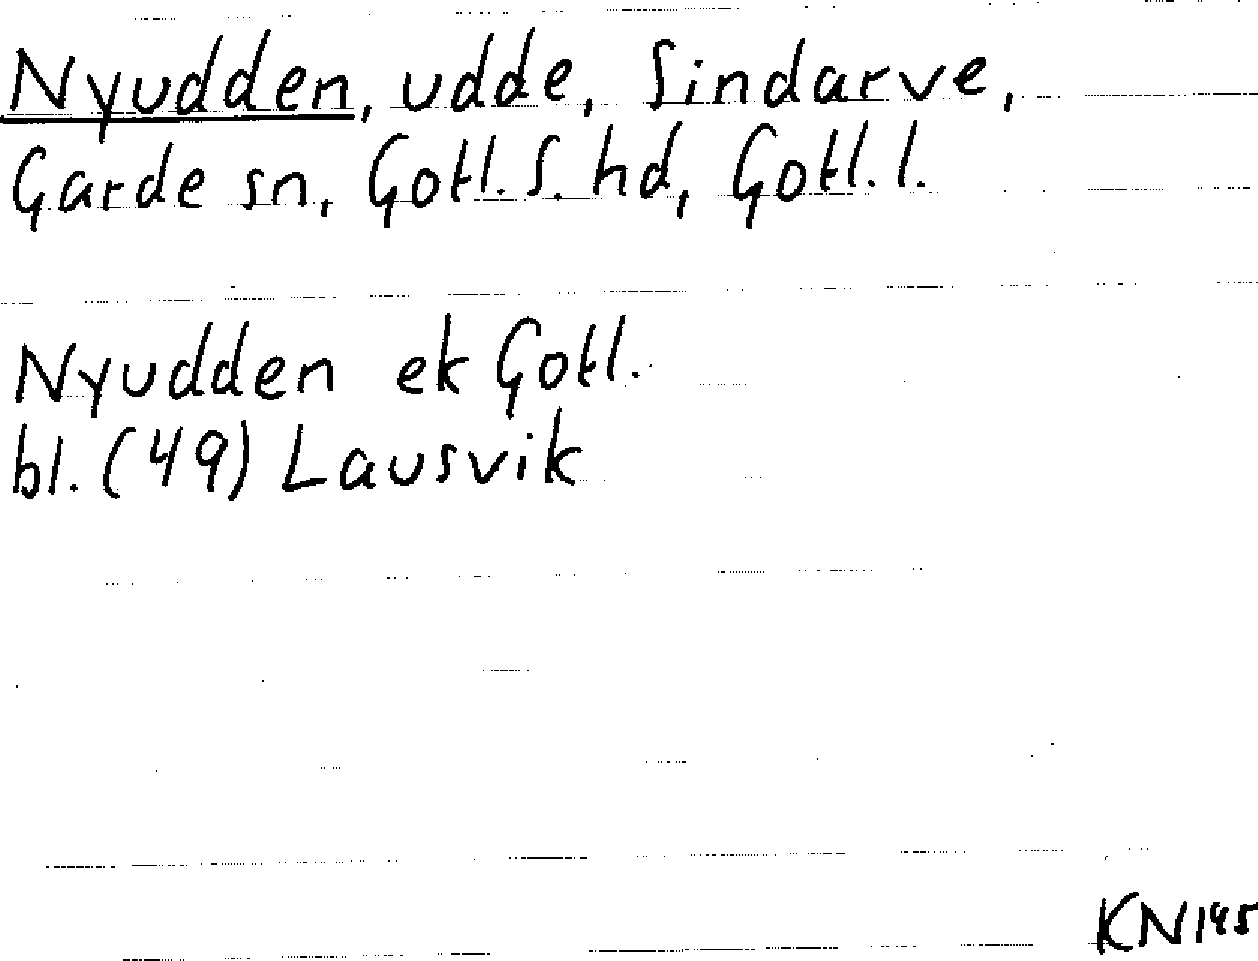 Nyudden, udde, Sindarve,
Garde sn, Gotl. S. hd, Gotl. l.
Nyudden ek Gotl.
bl. (49) Lausvik
KN145